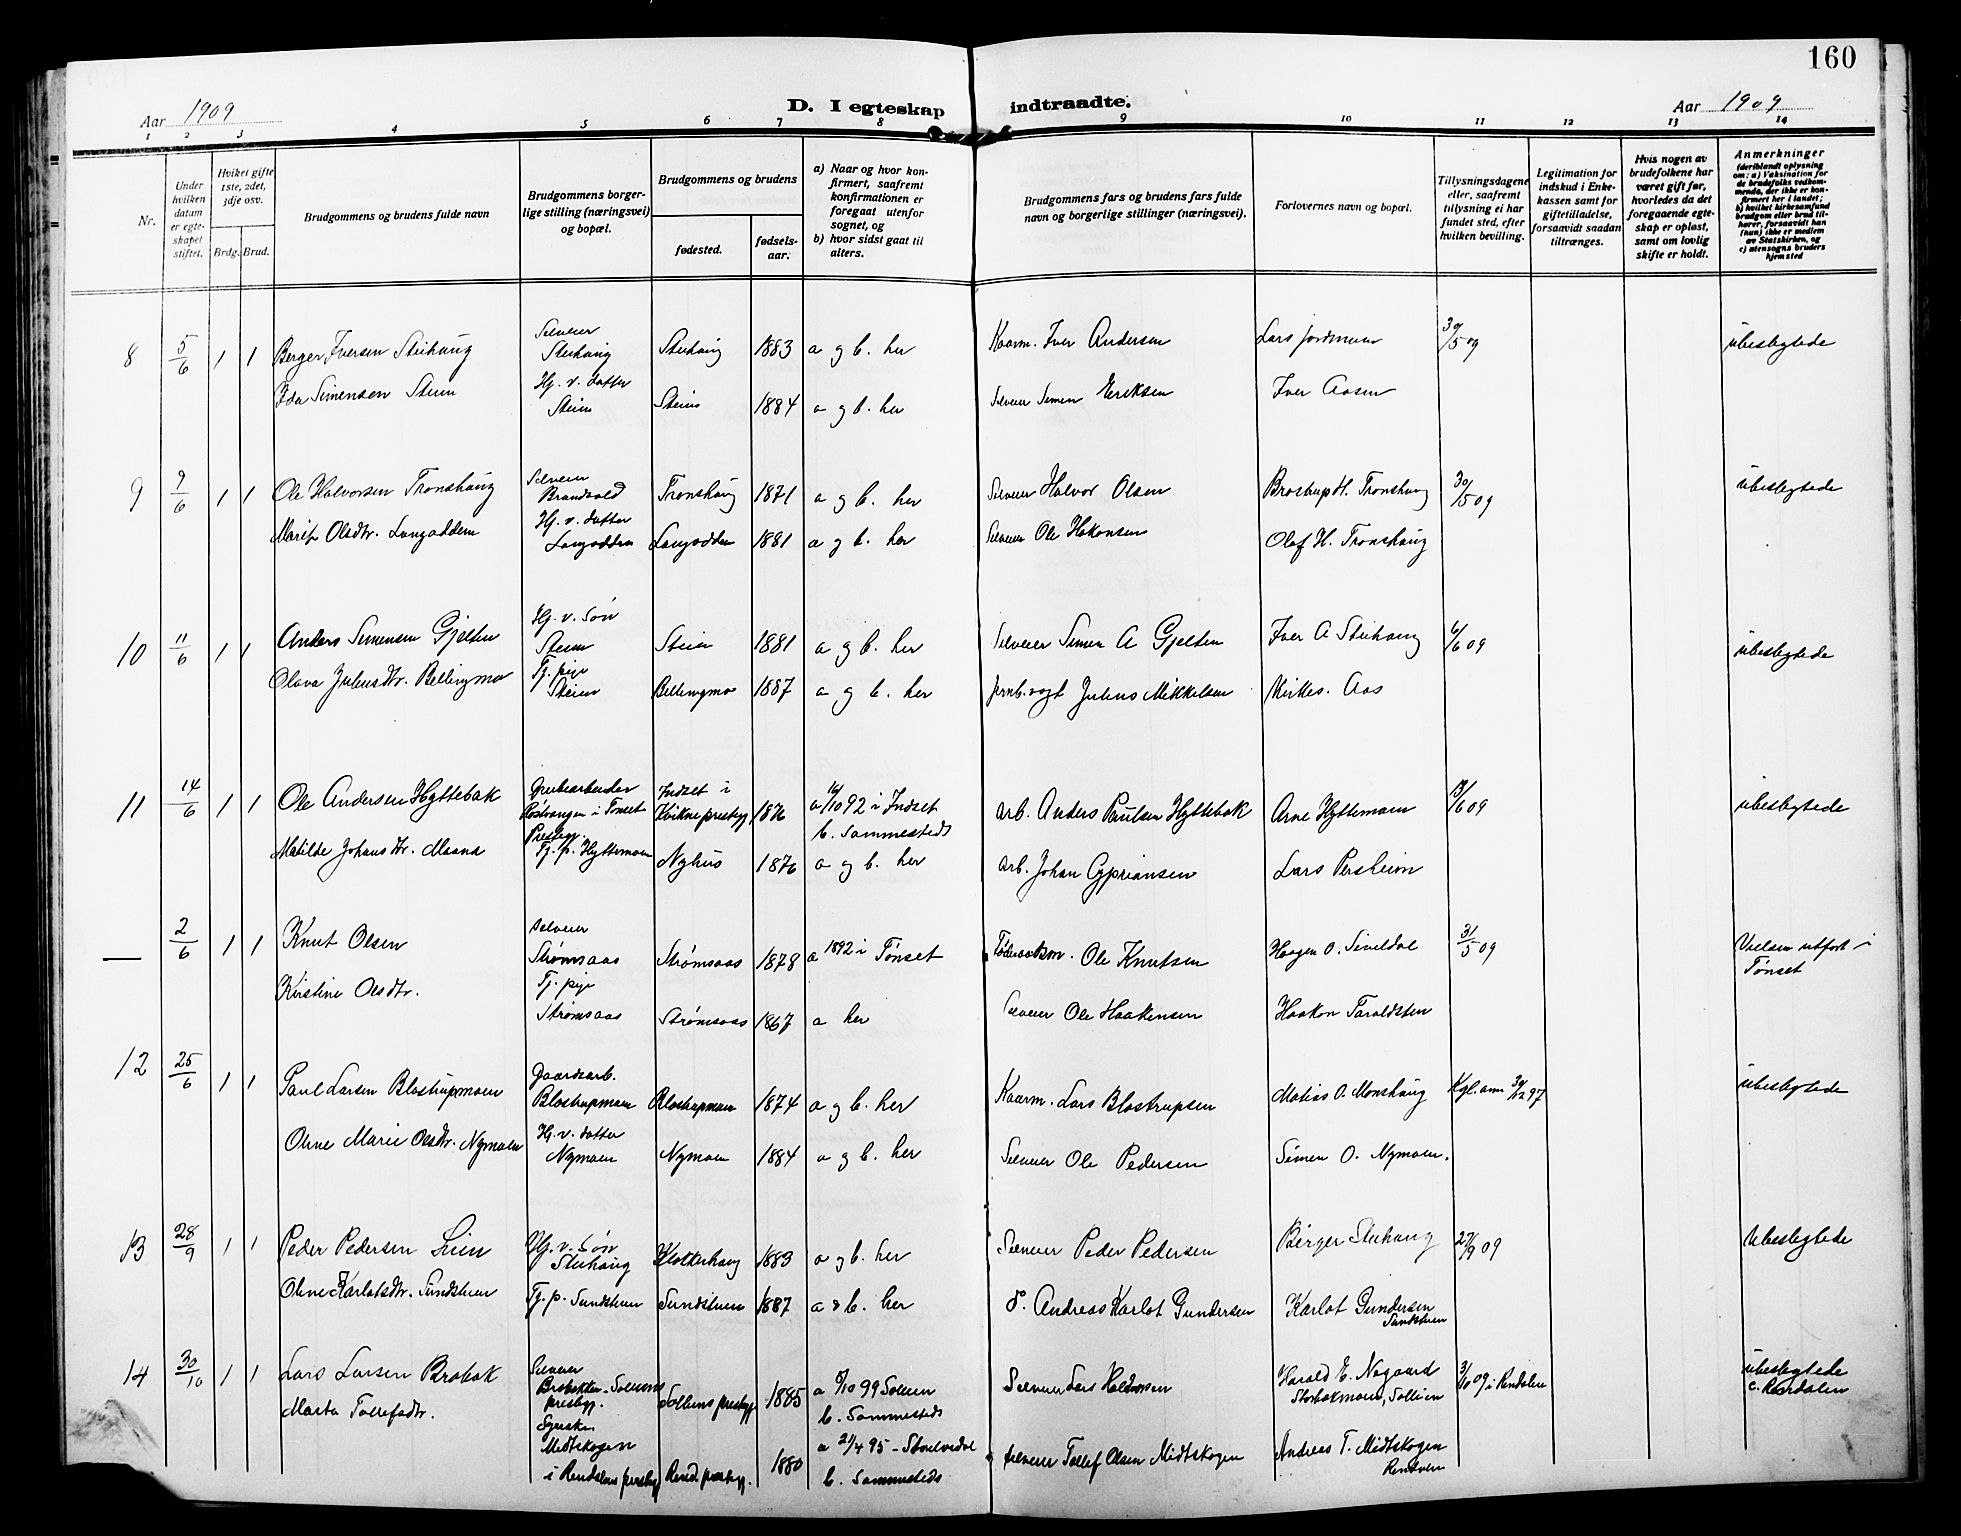 160
Aar 1909
D. I egteskap indtraadte.
Aar 1909
1 2 3 4 5 6 7 8 9 10 11 12 13 14
Nr.
Under hvilken datum er egteskapet stiftet.
Hviket gifte 1ste, 2det, 3dje osv.
Brdg. Brud.
Brudgommens og brudens fulde navn
Brudgommens borgerlige stilling (næringsvei) og bopæl.
Brudgommens og brudens
fødested.
fødselsaar.
a) Naar og hvor konfirmert, saafremt konfirmationen er foregaat utenfor sognet, og
b) hvor sidst gaat til alters.
Brudgommens fars og brudens fars fulde navn og borgerlige stillinger (næringsvei).
Forlovernes navn og bopæl.
Tillysningsdagene eller, saafremt tillysning ei har fundet sted, efter hvilken bevilling.
Legitimation for indskud i Enkekassen samt for giftetilladelse, forsaavidt saadan tiltrænges.
Hvis nogen av brudefolkene har været gift før, hvorledes da det foregaaende egteskap er opløst, samt om lovlig skifte er holdt.
Anmerkninger (deriblandt oplysning om: a) Vaksination for de brudefolks vedkommende, der ikke er konfirmert her i landet; b) hvilket kirkesamfund brudgom eller brud tilhører, forsaavidt han (hun) ikke er medlem av Statskirken, og c) utensogns bruders hjemsted
8 5/6 1 1 Berger Iversen Steihaug Selveier Steihaug Steihaug 1883 a og b. her Kaarm. Iver Andersen Lars Jordmoen 30/5 09 ubeslegtede
Ida Simensen Steien Hj. v. datter Steien Steien 1884 a og b. her Selveier Simen Eriksen Iver Aasen
9 9/6 1 1 Ole Halvorsen Tronshaug Selveier Brandvold Tronshaug 1871 a og b. her Selveier Halvor Olsen Brostrup H. Tronshaug 30/5 09 ubeslegtede
Marit Olsdtr. Langodden Hj. v. datter Langodden Langodden 1881 a og b. her Selveier Ole Hakonsen Olaf H. Tronshaug
10 11/6 1 1 Anders Simensen Gjelten Hj. v. Søn Steien Steien 1881 a og b. her Selveier Simen A Gjelten Iver A Steihaug 6/6 09 ubeslegtede
Olava Juliusdtr. Bellingmo Tj. pige Steien Bellingmo 1887 a og b. her Jernb. vogt Julius Mikkelsen Mikkes. Aas
11 14/6 1 1 Ole Andersen Hyttebak Grubearbeider Røstvangen i Tønset Prestegj. Indset i Kvikne prestegj. 1876 a 16/10 92 i Indset b. Sammesteds Arb. Anders Paulsen Hyttebak Arne Hyttemoen 13/6 09 ubeslegtede
Matilde Johansdtr. Maana Tj. p. Hyttemoen Nyhus 1876 a og b. her Arb. Johan Cypriansen Lars Persheim
— 2/6 1 1 Knut Olsen Selveier Strømsaas Strømsaas 1878 a 1892 i Tønset Føderaadsm. Ole Knutsen Haagen O. Sineldal 31/5 09 Vielsen utført i Tønset
Kirstine Olsdtr. Tj. pige Strømsaas Strømsaas 1867 a her Selveier Ole Haakensen Haakon Taraldsten
12 25/6 1 1 Paul Larsen Blostrupmoen Gaardarb. Blostrupmoen Blostrupmoen 1874 a og b. her Kaarm. Lars Blostrupsen Matias O. Monshaug Kgl. ann 30/12 97 ubeslegtede
Oline Marie Olsdtr. Nymoen Hj. v. datter Nymoen Nymoen 1884 a og b. her Selveier Ole Pedersen Simen O. Nymoen.
13 28/9 1 1 Peder Pedersen Lien Hj. v. Søn Steihaug Klokkerhaug 1883 a og b. her Selveier Peder Pedersen Berger Steihaug 27/9 09 Ubeslegtede
Oline Karlotsdtr. Sundstuen Tj. p. Sundstuen Sundstuen 1887 a & b. her S. Andreas Karlot Gundersen Karlot Gundersen Sundstuen
14 30/10 1 1 Lars Larsen Brobak Selveier Brobakken Solliens prestegj. Solliens prestegj. 1885 a 8/10 99 Sollien b. Sammesteds Selveier Lars Haldorsen Harald E. Nygaard Storbakmoen, Sollien 3/10 09 i Rendalen ubeslegtede c. Rendalen
Marta Tollefsdtr. Syerske Midtskogen i Rendalens prestegj. Rend. prestegj. 1880 a 21/4 95 - Storelvedal b. Sammesteds Selveier Tollef Olsen Midtskogen Andreas T. Midtskogen Rendalen